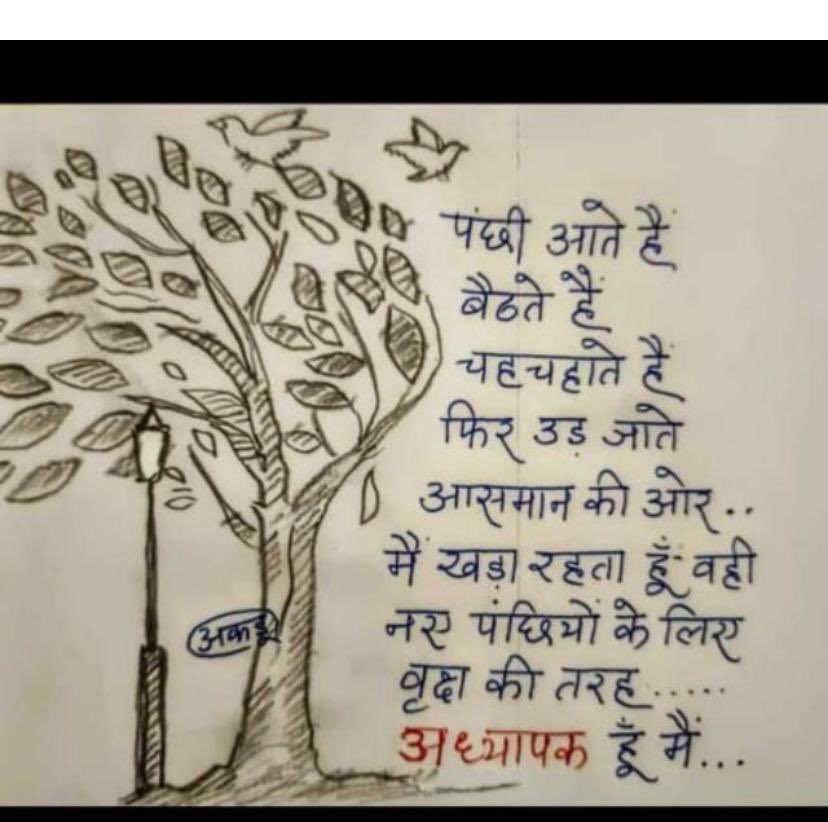 पंछी आते हैं
बैठते हैं
चहचहाते हैं
फिर उड़ जाते
आसमान की ओर..
मैं खड़ा रहता हूँ वही
नए पंछियों के लिए
वृक्ष की तरह.....
अध्यापक हूँ मैं...